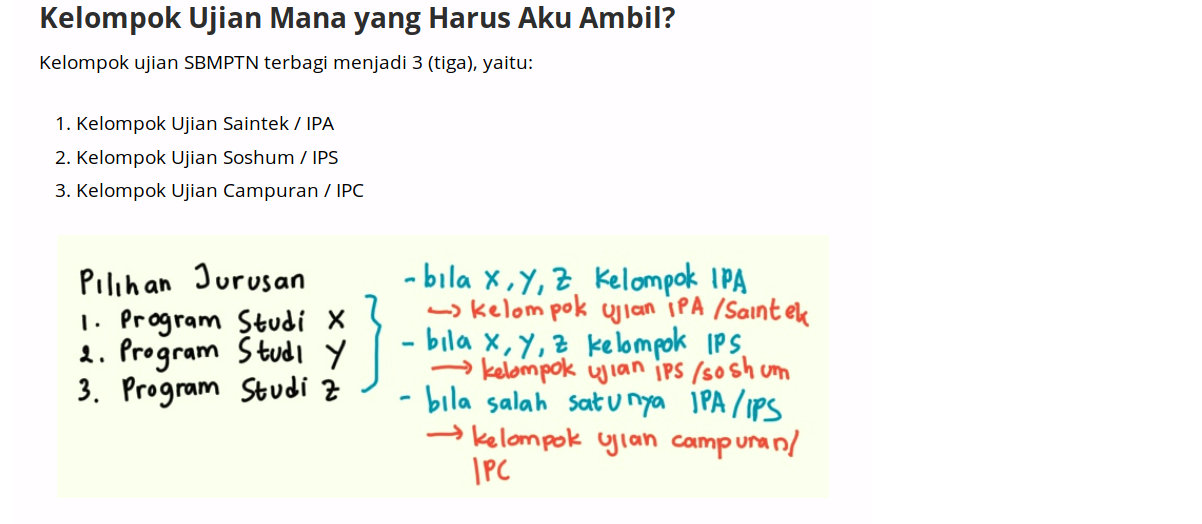 Kelompok Ujian Mana yang Harus Aku Ambil?
Kelompok ujian SBMPTN terbagi menjadi 3 (tiga), yaitu:
1. Kelompok Ujian Saintek / IPA
2. Kelompok Ujian Soshum / IPS
3. Kelompok Ujian Campuran / IPC
Pilihan Jurusan
1. Program Studi X
2. Program Studi Y
3. Program Studi Z
- bila X, Y, Z Kelompok IPA
→ kelompok ujian IPA /Saintek
- bila X, Y, Z kelompok IPS
→ kelompok ujian IPS /soshum
- bila salah satunya IPA/IPS
→ kelompok ujian campuran/
IPC